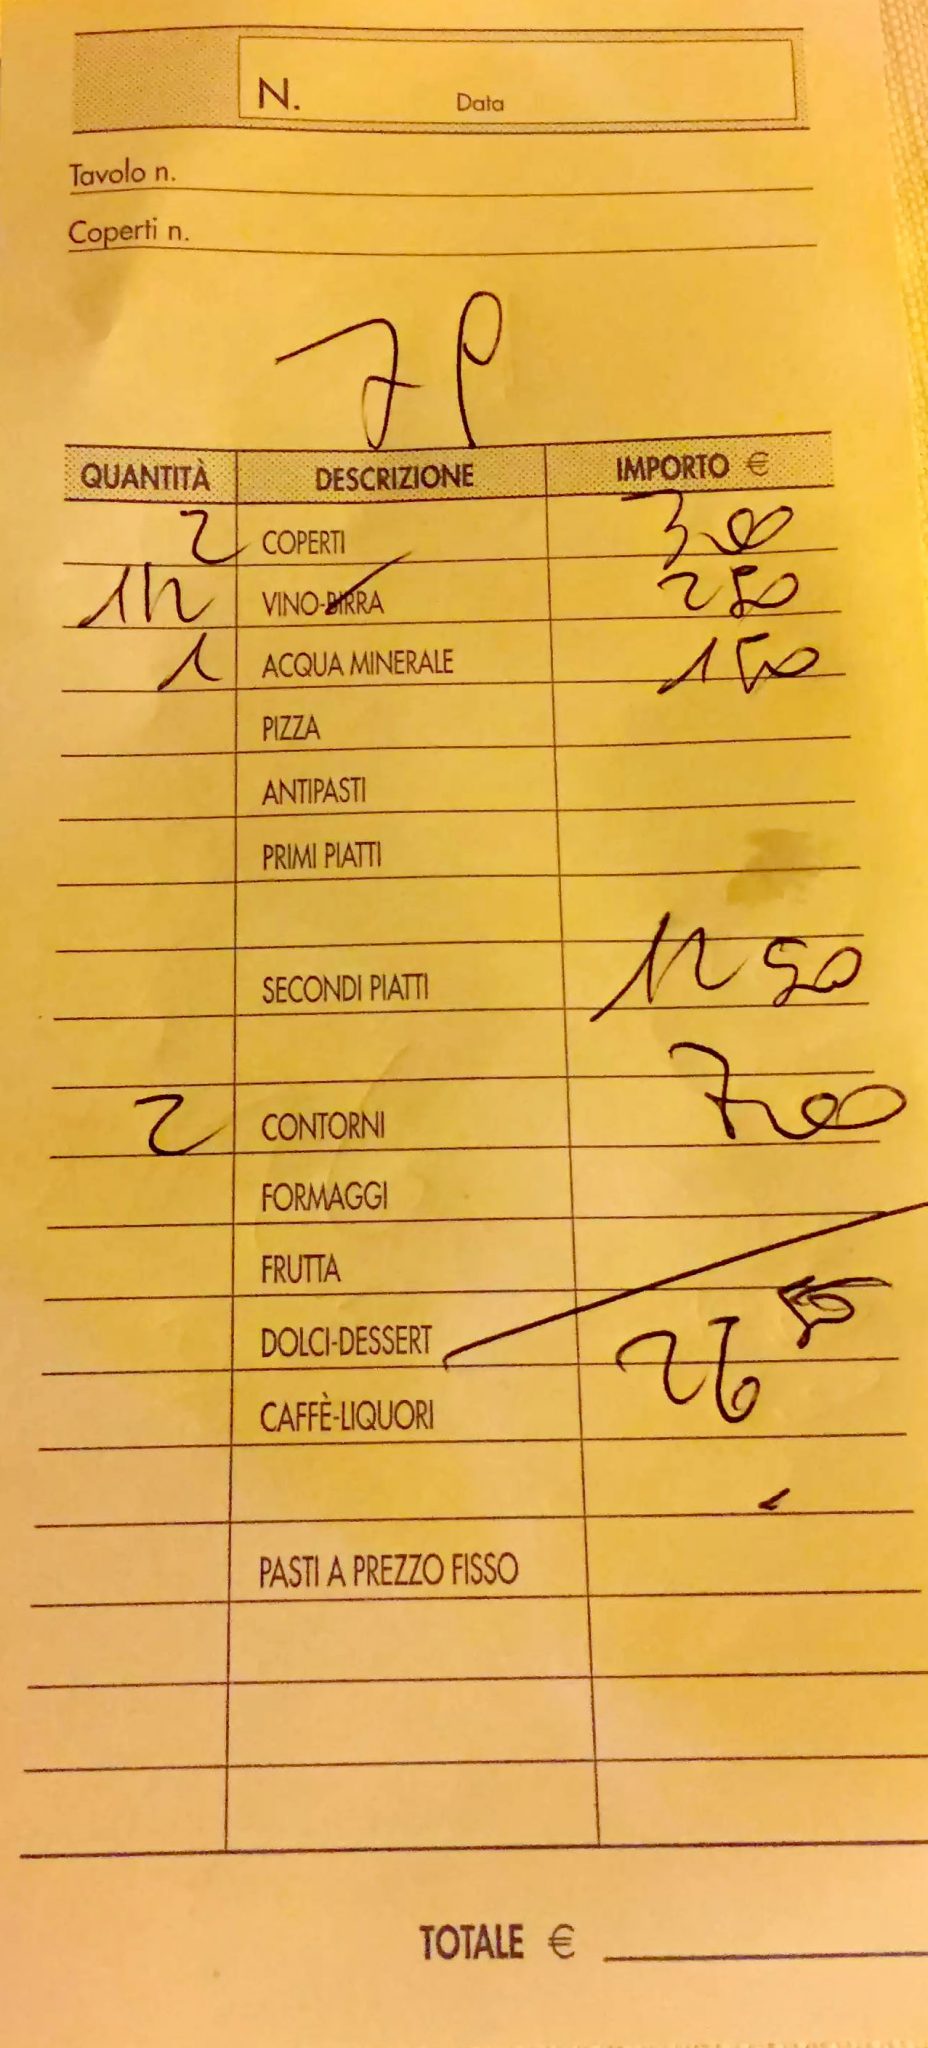 N. Data
Tavolo n.
Coperti n.
7 P
QUANTITÀ DESCRIZIONE IMPORTO €
2 COPERTI 3 00
1/2 VINO-BIRRA 2 50
1 ACQUA MINERALE 1 50
PIZZA
ANTIPASTI
PRIMI PIATTI
SECONDI PIATTI 12 50
2 CONTORNI 7 00
FORMAGGI
FRUTTA
DOLCI-DESSERT
26 50
CAFFÈ-LIQUORI
PASTI A PREZZO FISSO
TOTALE €